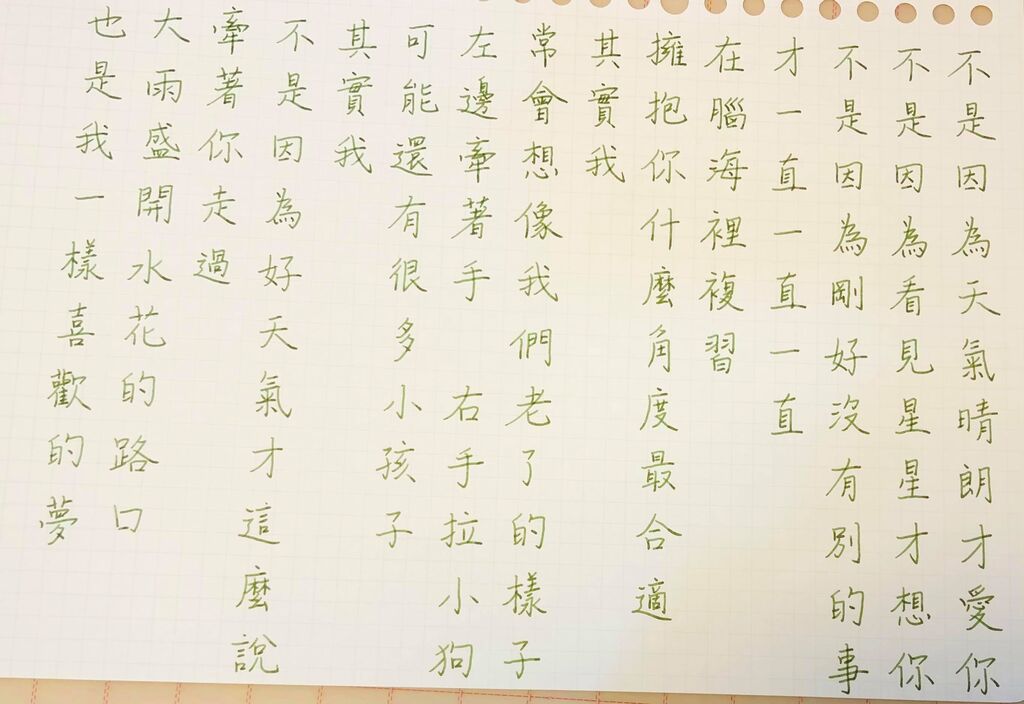 不是因為天氣晴朗才愛你
不是因為看見星星才想你
不是因為剛好沒有別的事
才一直一直一直
在腦海裡複習
擁抱你什麼角度最合適
其實我
常會想像我們老了的樣子
左邊牽著手 右手拉小狗
可能還有很多小孩子
其實我
不是因為好天氣才這麼說
牽著你走過
大雨盛開水花的路口
也是我一樣喜歡的夢